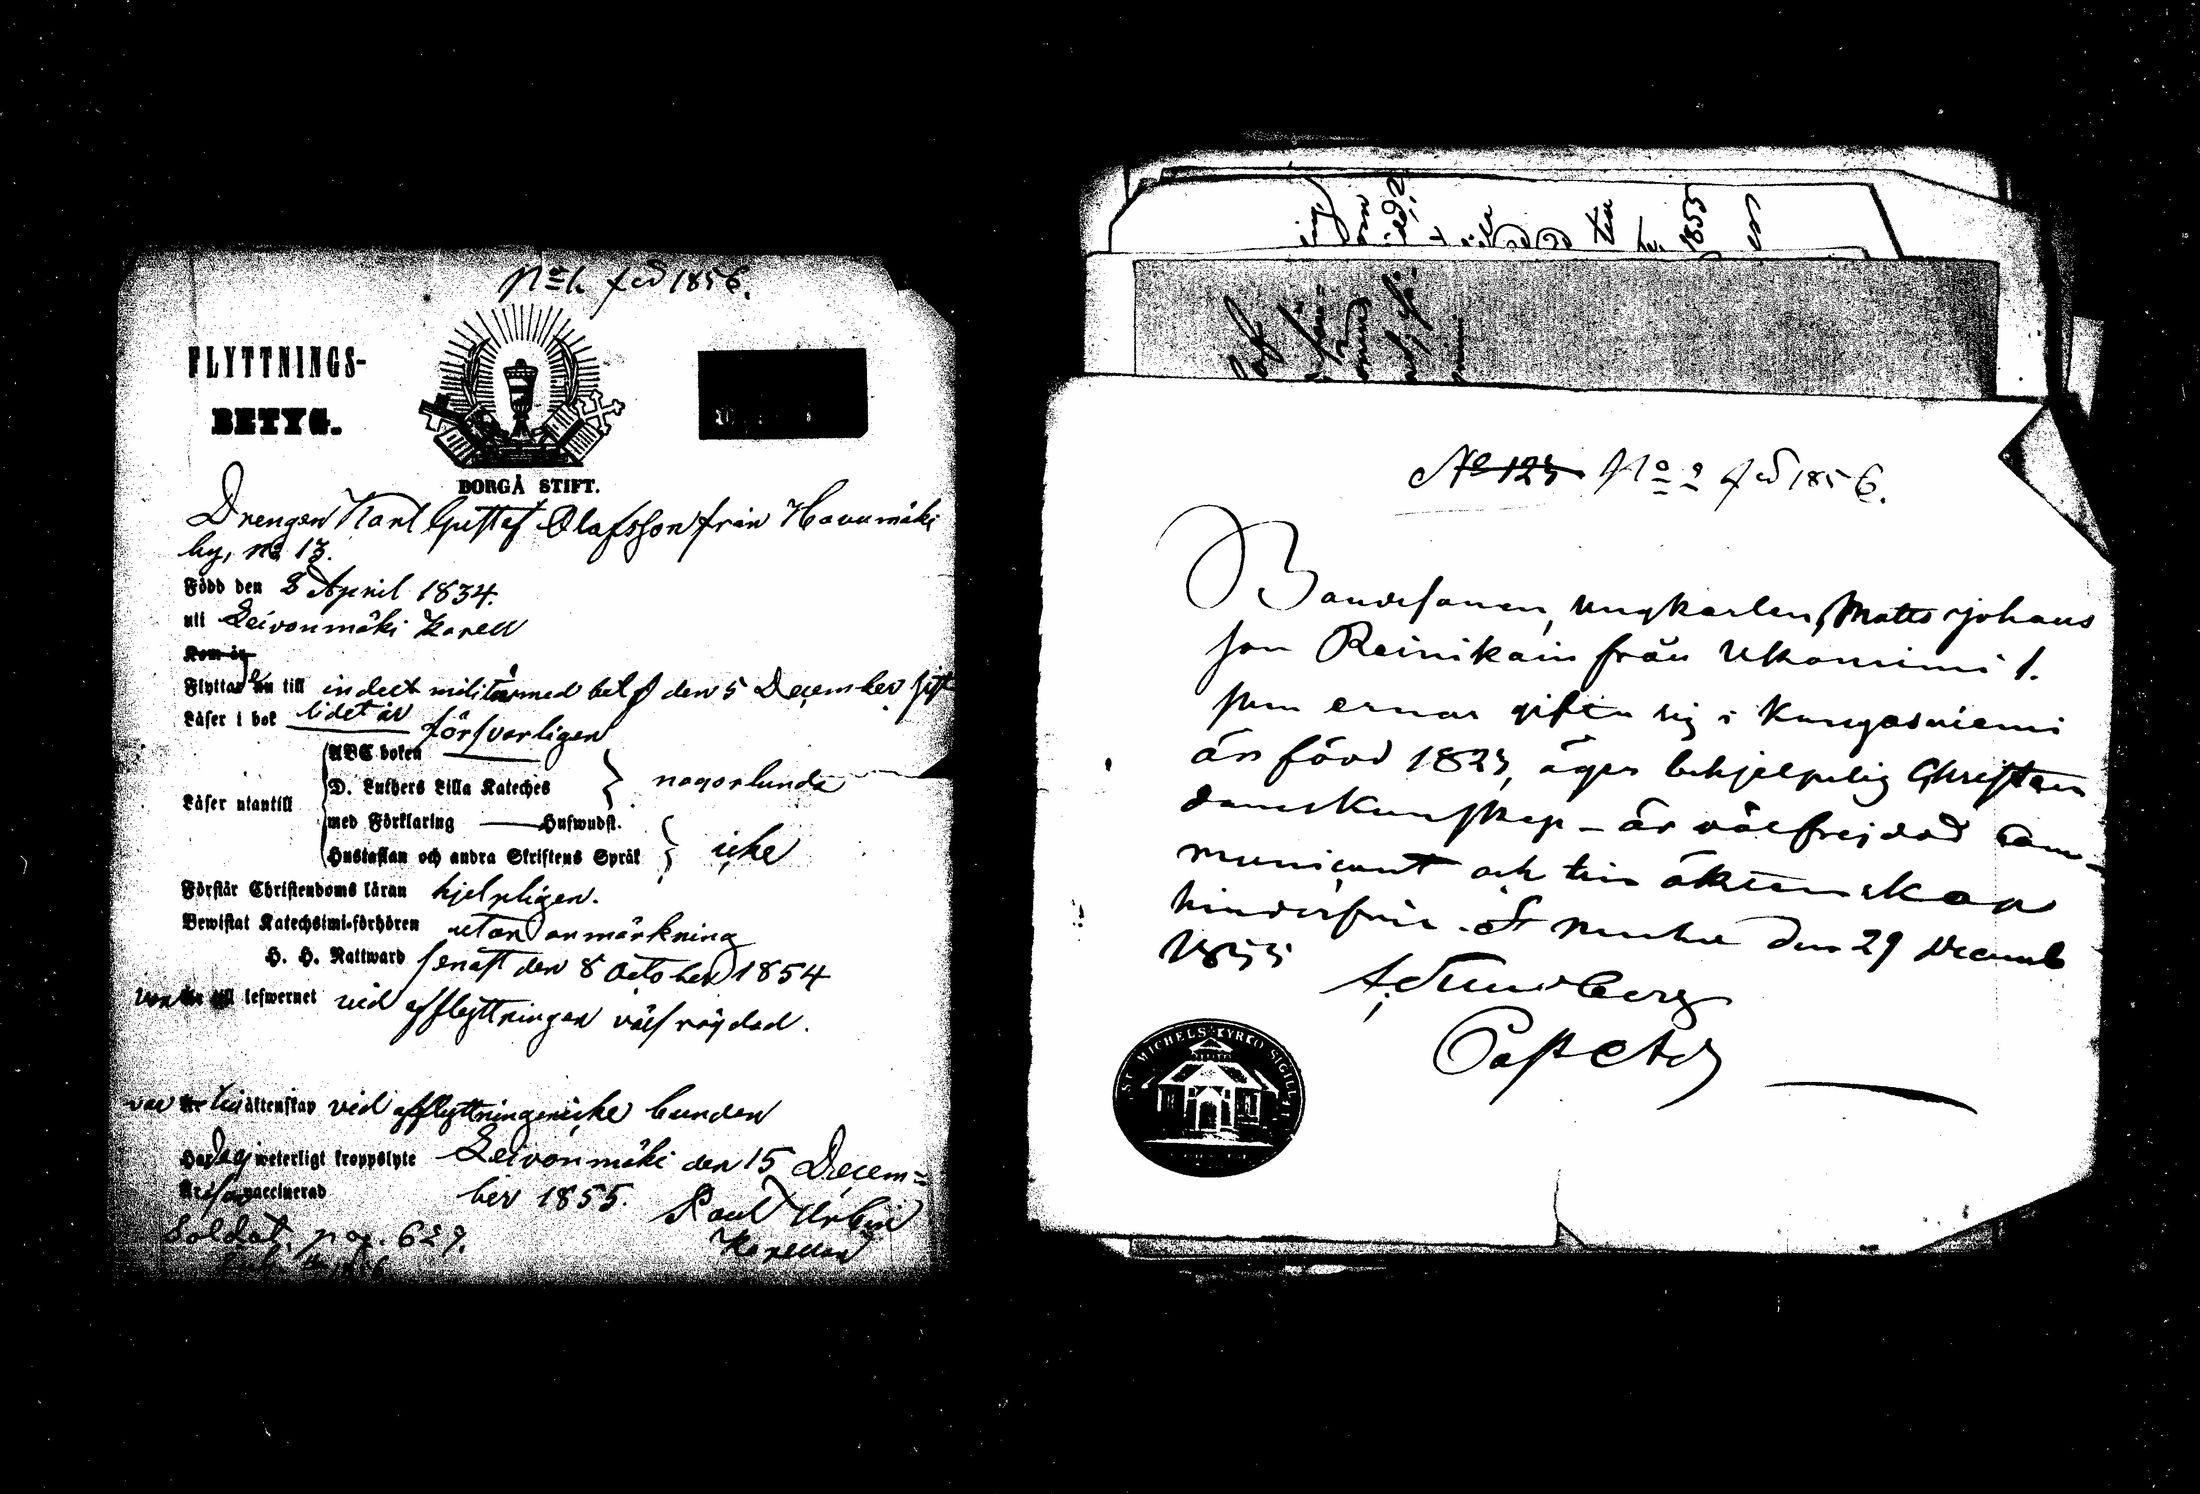 No 1. fcd 1856.
FLYTTNINGS-
BETYG.
BORGÅ STIFT.
Drengen Karl Gustaf Olafsson från Havumäki
by, no 13.
Född den 8 April 1834.
uti Leivonmäki Kapell
Kom är
Flyttade till indelt militär med bet. af den 5 December sist
Läser i bok lidet år försvarligen
ABC boken
D. Luthers Lilla Kateches
någorlunda
Läser utantill
med Förklaring Huswudst.
Hustaflan och andra Skriftens Språk
icke
Förstår Christendoms läran hjelpligen.
Bewistat Katechsimi-förhören utan anmärkning
H. H. Nattward senast den 8 October 1854
till lefwernet vid afflyttningen välfräjdad.
var till äktenskap vid afflyttningen icke bunden
Har weterligt kroppslyte Leivonmäki den 15 Decem=
vaccinerad ber 1855. Paul Urbin
Kapellan
Soldat. pag. 627.
No 123 No 2 fcd 1856.
Bondesonen, ungkarlen, Matts Johans
son Reinikain från Ukonniemi 1.
som ernar gifta sig i Kangasniemi
är född 1823, äger behjelpelig Christen
domskunskap - är välfrejdad Com-
municant och till äktenskap
hinderfri. St Michel den 29 Decemb
1855
Past
ST. MICHELS KYRKO SIGILL
1855